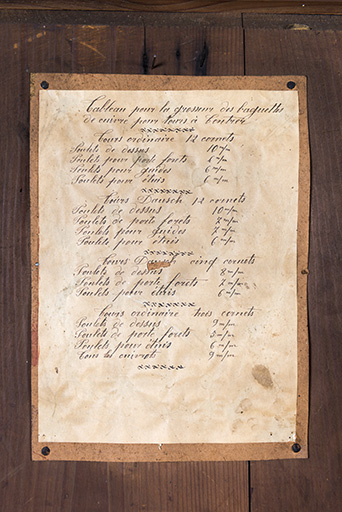 Tableau pour la grosseur des baguettes
de cuivre pour tours à Centrer
xxxxxxxx
Tours ordinaire 12 cornets
Poulets de dessus 10 m/m
Poulets pour porte forets 6 m/m
Poulets pour guides 6 m/m
Poulets pour étuis 6 m/m
xxxxxxxx
Tours Dausch 12 cornets
Poulets de dessus 10 m/m
Poulets de porte forets 7 m/m
Poulets pour guides 7 m/m
Poulets pour étuis 6 m/m
xxxxxxxx
Tours Dausch cinq cornets
Poulets de dessus 8 m/m
Poulets de porte forets 7 m/m
Poulets pour étuis 6 m/m
xxxxxxxx
Tours ordinaire trois cornets
Poulets de dessus 9 m/m
Poulets de porte forets m/m
Poulets pour étuis 6 m/m
Tous les cuivrots 9 m/m
xxxxxxx